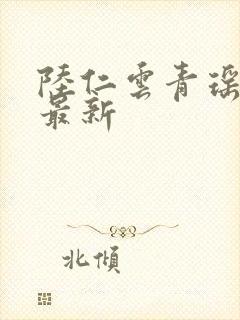 陸仁雲青瑶
最新
北傾